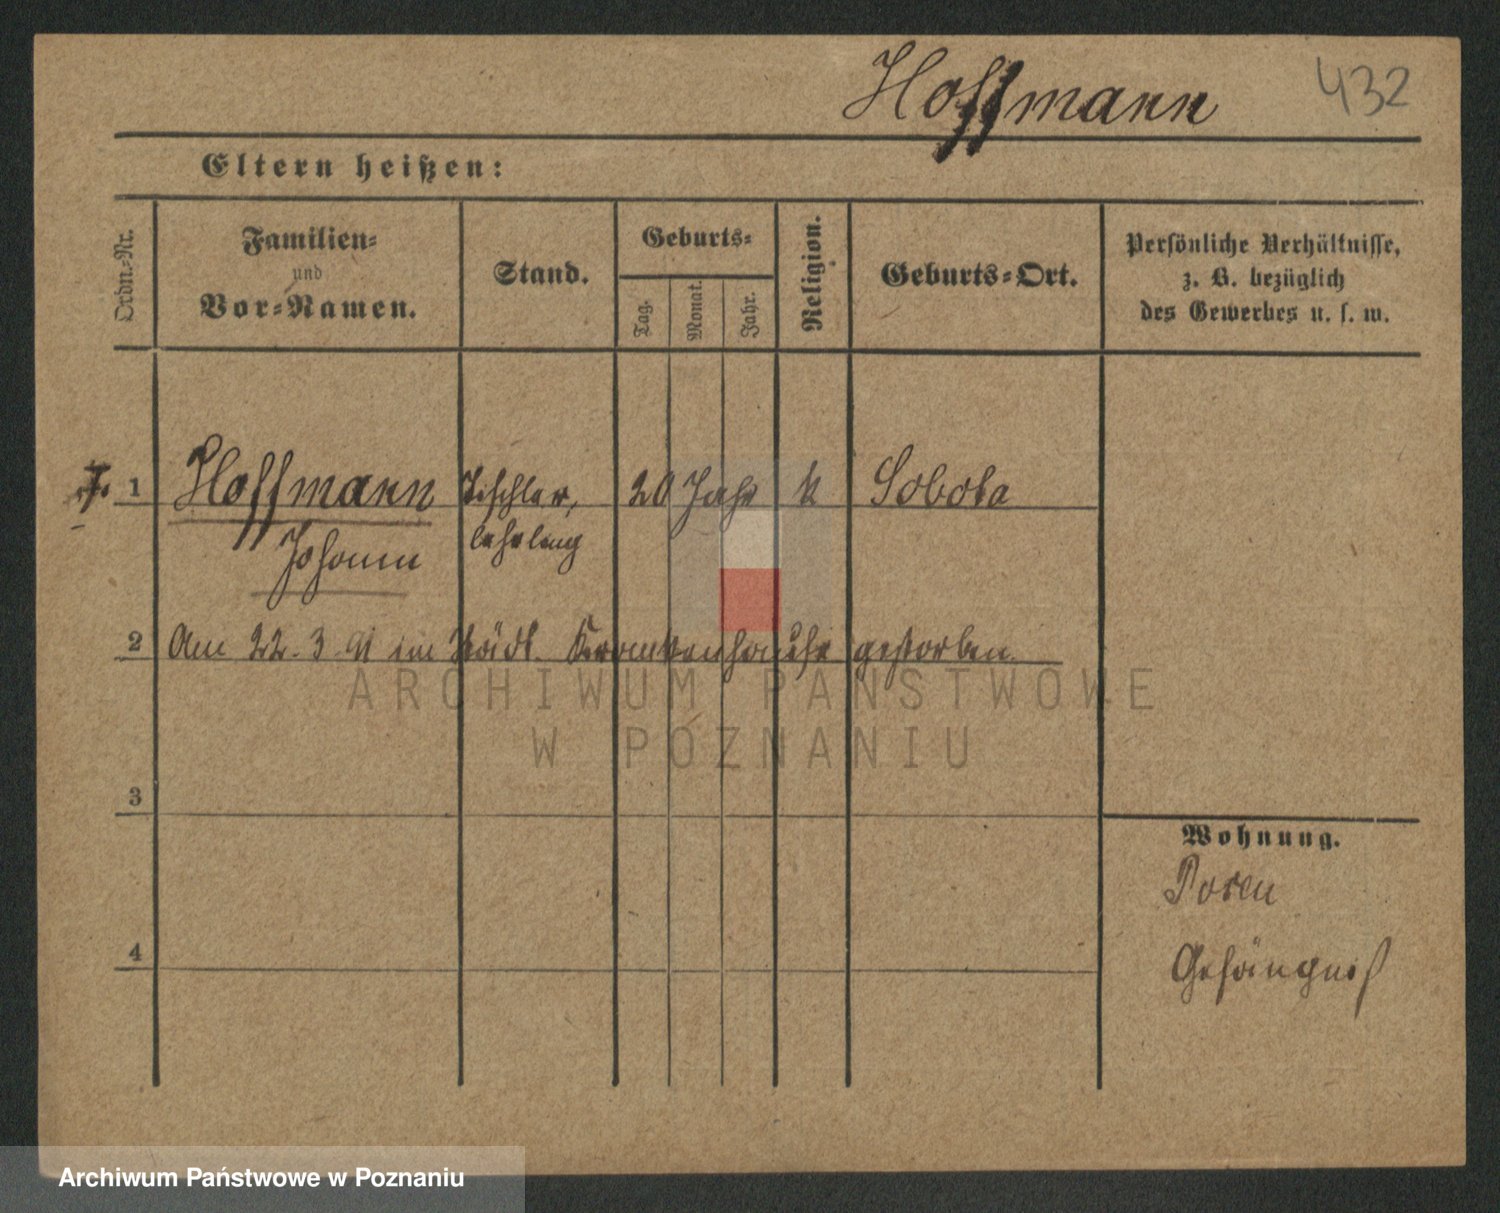 Hoffmann 432
Eltern heißen:
Ordn.-Nr.
Familien-
und
Vor-Namen.
Stand.
Geburts-
Tag.
Monat.
Jahr.
Religion.
Geburts-Ort.
Persönliche Verhältnisse,
z. B. bezüglich
des Gewerbes u. s. w.
1 Hoffmann Tischler, 20 Jahr k Sobota
Johann lehrling
2 Am 22.3.91 im Städt. Krankenhause gestorben.
ARCHIWUM PAŃSTWOWE
W POZNANIU
3
Wohnung.
Posen
4
Gefängniß
Archiwum Państwowe w Poznaniu